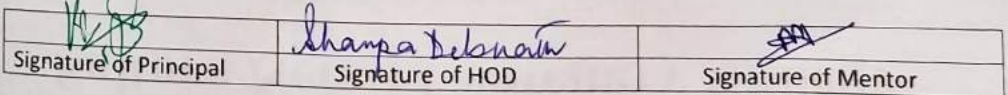 Shampa Debnath
Signature of Principal Signature of HOD Signature of Mentor